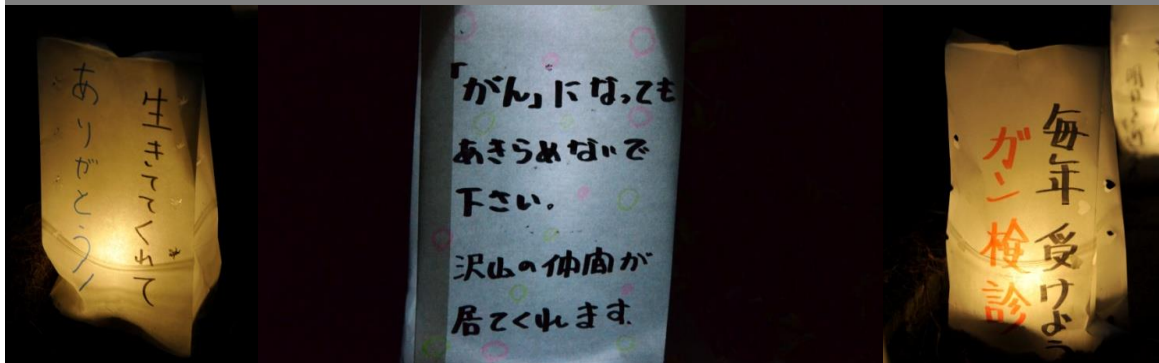 生きててくれて
ありがとう!
「がん」になっても
あきらめないで
下さい。
沢山の仲間が
居てくれます.
毎年 受けよう
ガン 検診